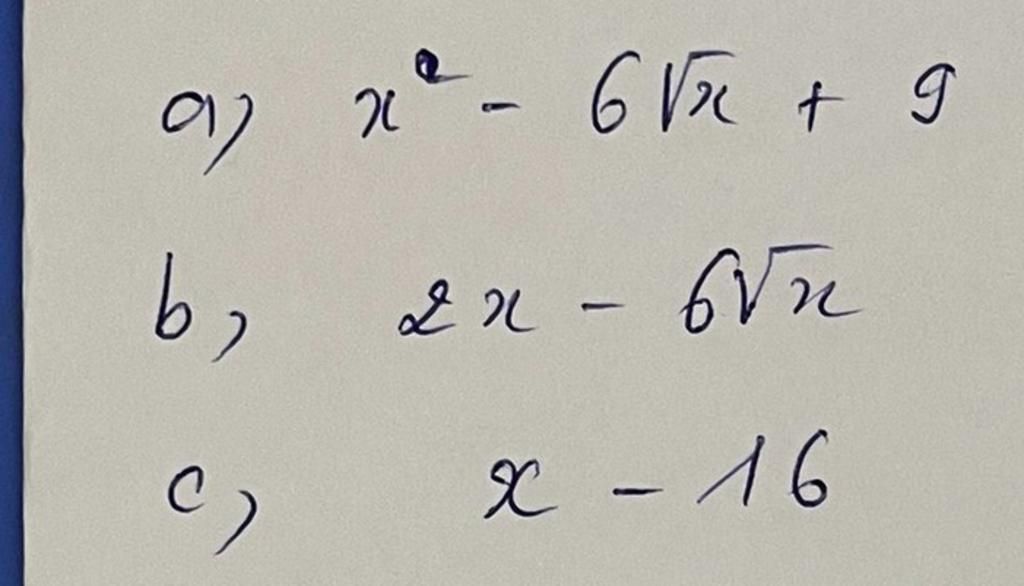 a) x² - 6√x + 9
b, 2x - 6√x
c, x - 16